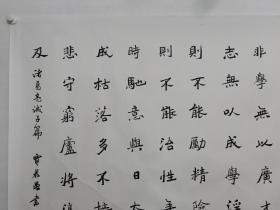 非學無以廣
志無以成學淫
則不能勵精險
則不能治性年
時馳意與日去
成枯落多不接
悲守窮廬將復
及
諸葛亮誡子篇 書